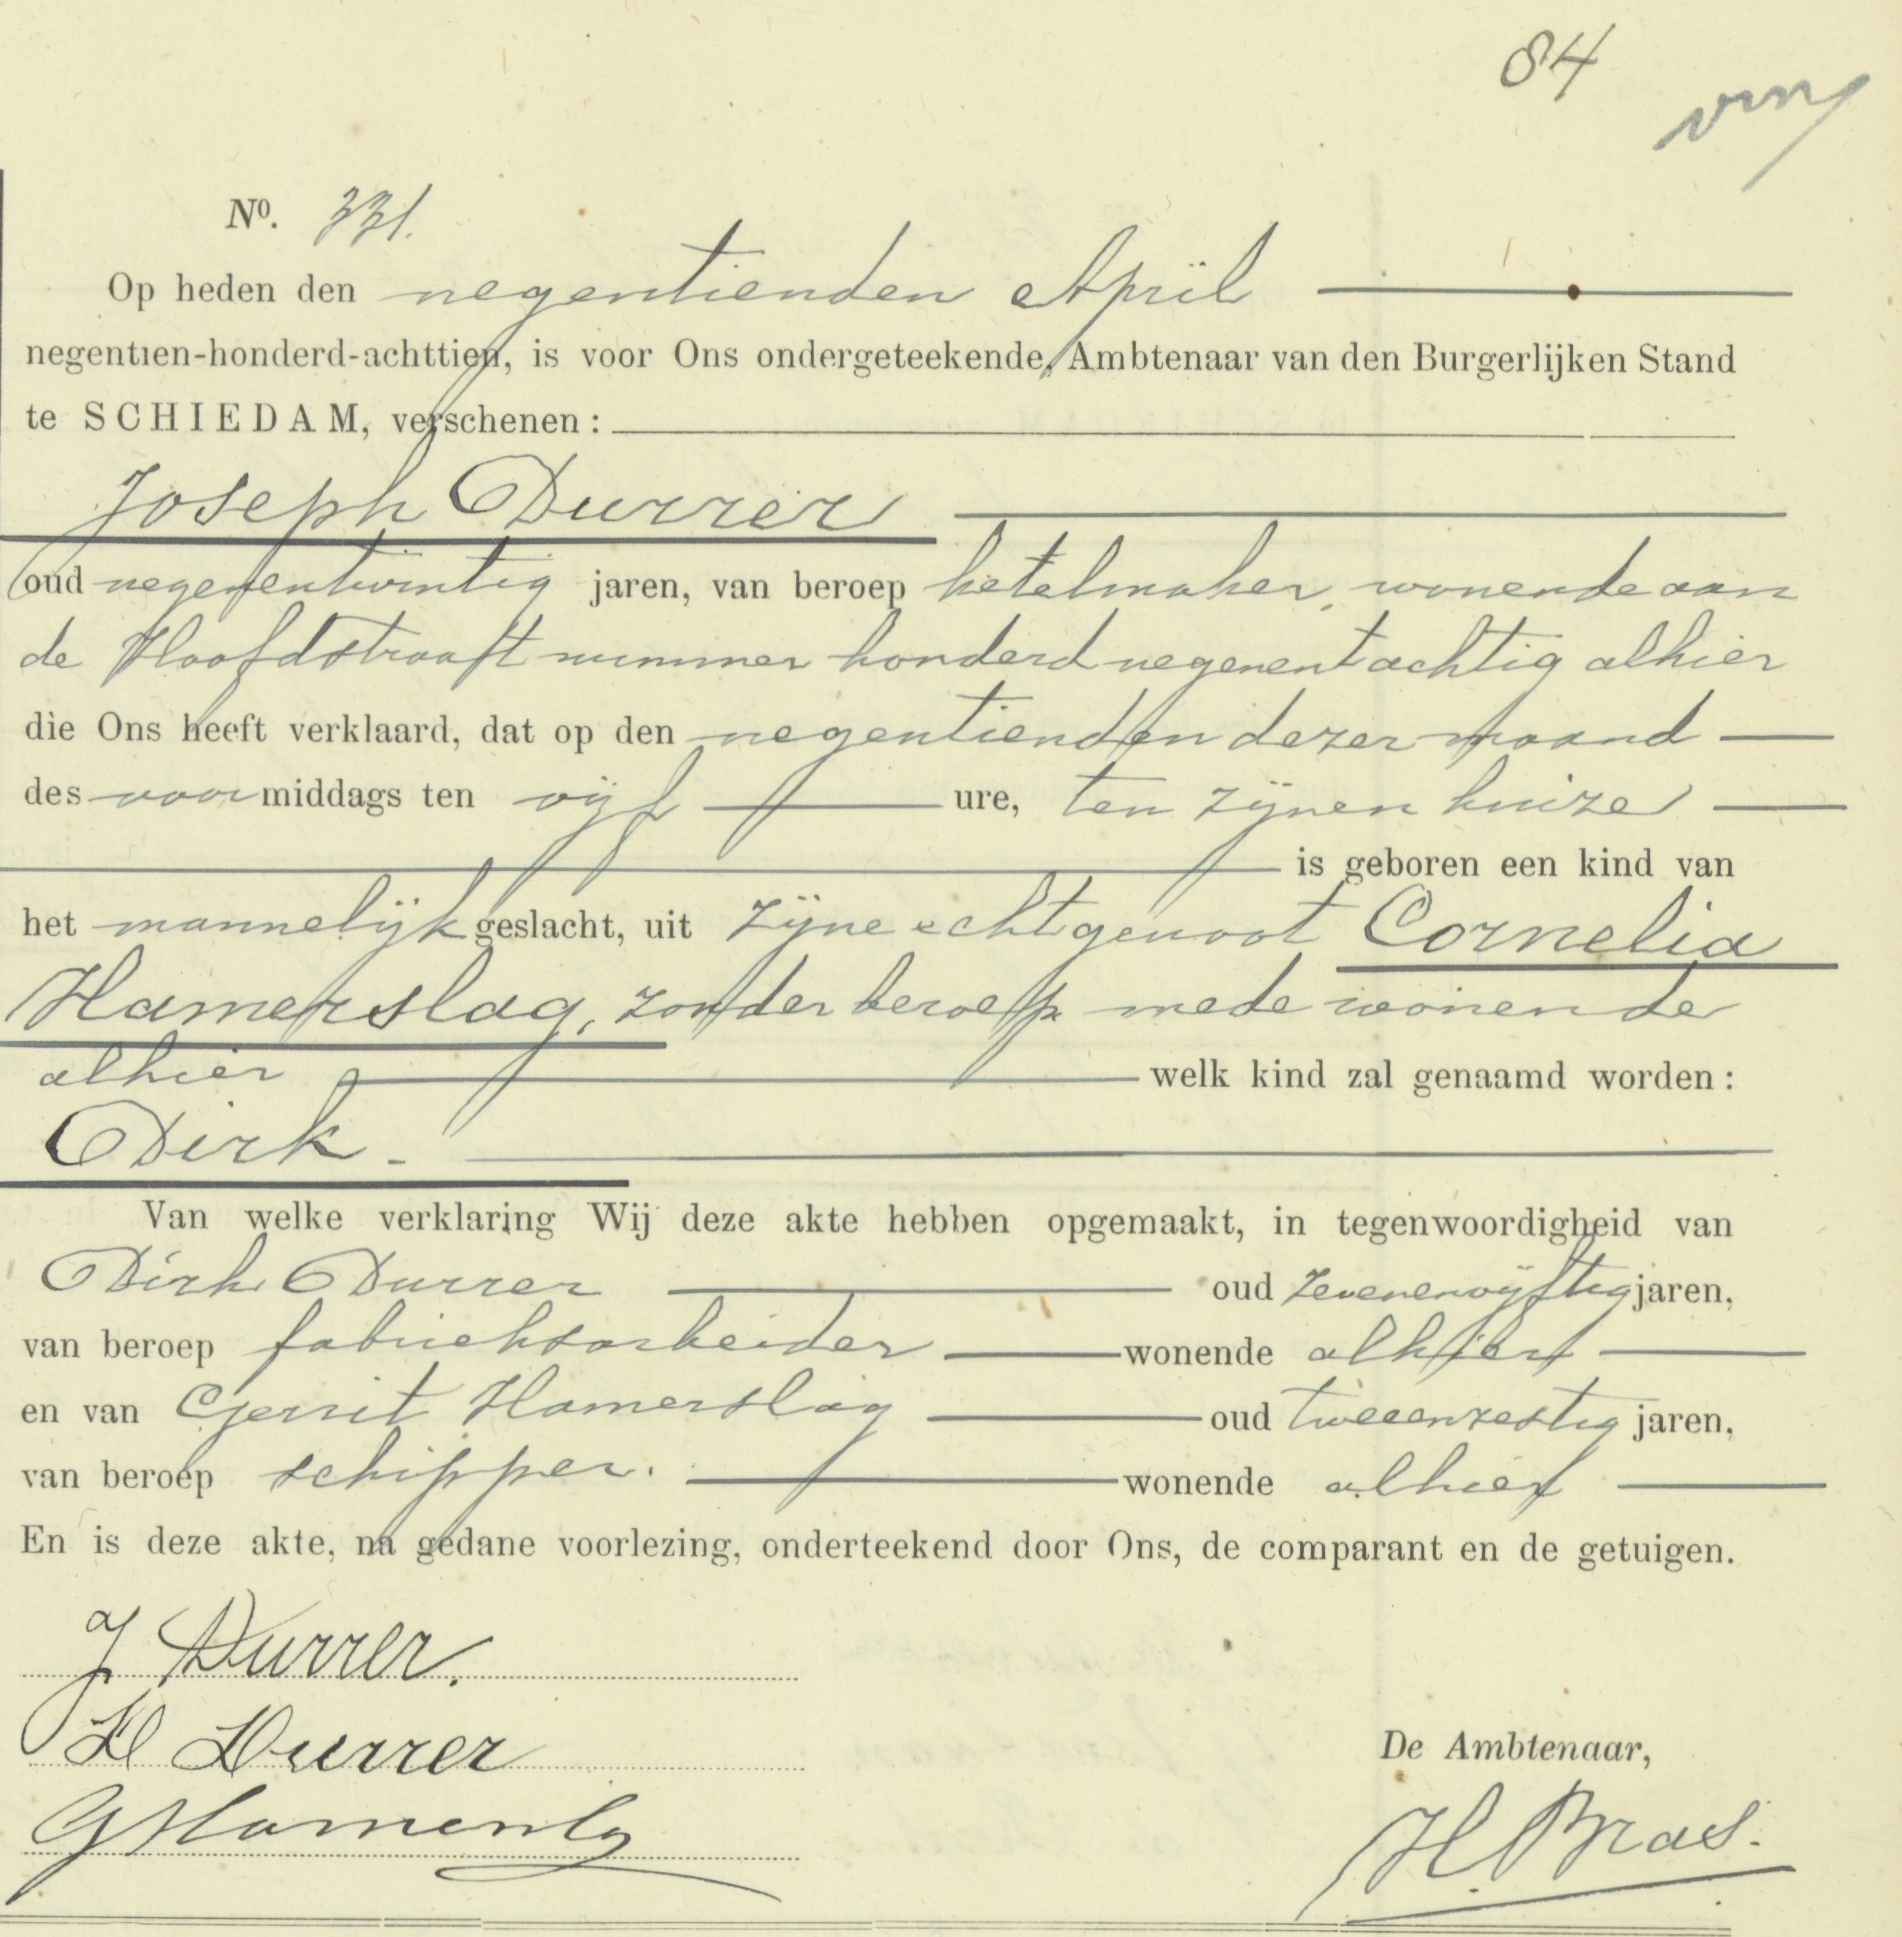 84
N⁰. 331.
Op heden den negentienden April
negentien-honderd-achttien, is voor Ons ondergeteekende, Ambtenaar van den Burgerlijken Stand
te SCHIEDAM, verschenen:
Joseph Durrer
oud negenentwintig jaren, van beroep ketelmaker, wonende aan
de Hoofdstraat nummer honderd negenentachtig alhier
die Ons heeft verklaard, dat op den negentienden dezer maand
des voormiddags ten vijf ure, ten zijnen huize
is geboren een kind van
het mannelijk geslacht, uit zijne echtgenoot Cornelia
Hamerslag, zonder beroep mede wonende
alhier welk kind zal genaamd worden:
Dirk.
Van welke verklaring Wij deze akte hebben opgemaakt, in tegenwoordigheid van
Dirk Durrer oud zevenenvijftig jaren,
van beroep fabrieksarbeider wonende alhier
en van Gerrit Hamerslag oud tweeenzestig jaren,
van beroep schipper. wonende alhier
En is deze akte, na gedane voorlezing, onderteekend door Ons, de comparant en de getuigen.
J Durrer.
D Durrer
De Ambtenaar,
H. Bras.